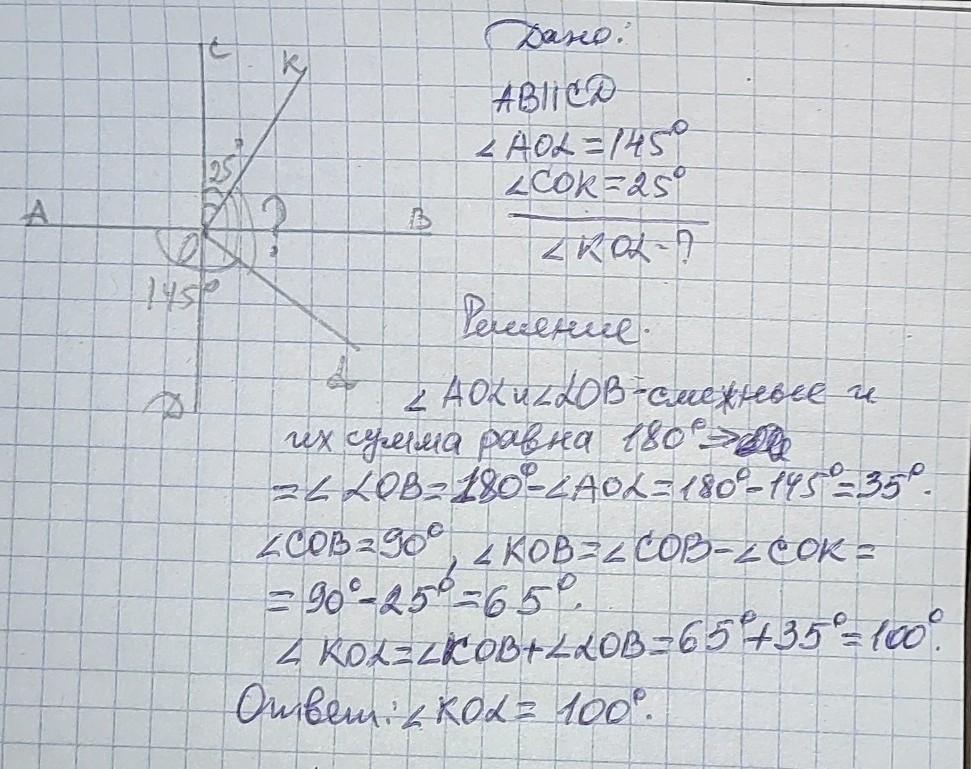 C
K
25°
A
B
?
O
145°
L
D
Дано:
AB||CD
∠AOL=145°
∠COK=25°
∠KOL-?
Решение.
∠AOL и ∠LOB-смежные и
их сумма равна 180°⇒
=∠LOB=180°-∠AOL=180°-145°=35°.
∠COB=90°, ∠KOB=∠COB-∠COK=
=90°-25°=65°.
∠KOL=∠KOB+∠LOB=65°+35°=100°.
Ответ: ∠KOL=100°.